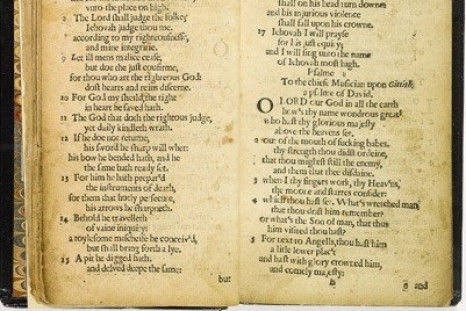 unto the place on high.
8 The Lord shall judge the folke,
Iehovah judge thou me.
according to my righteousness,
and mine integritie.
9 Let ill mens malice cease,
but doe the just confirme,
for thou who art the righteous God:
dost hearts and reins discerne.
10 For God my sheild, the right
in heart he saved hath.
11 The God that doth the righteous judge,
yet daily kindleth wrath.
12 If he doe not returne,
his sword he sharp will whet:
his bow he bended hath, and he
the same hath ready set.
13 For him he hath prepar'd
the instruments of death,
for them that hotly persecute,
his arrows he sharpneth.
14 Behold he travelleth
of vaine iniquity:
a toylesome mischeife he conceiv'd,
but shall bring forth a lye.
15 A pit he digged hath,
and delved deepe the same:
but
shall on his head turn downe
and his injurious violence
shall fall upon his crowne.
17 Iehovah I will prayse
for his just equity;
and I will sing unto the name
of Iehovah most high.
Psalme
To the chiefe Musician upon Gittith,
a psalme of David.
O LORD our God in all the earth
how's thy name wondrous great
who hast thy glorious majesty
above the heavens set.
2 out of the mouth of sucking babes,
thy strength thou didst ordeine,
that thou mightst still the enemy,
and them that thee disdaine.
3 when I thy fingers work, thy Heav'ns,
the moone and starres consider:
4 which thou hast set. What's wretched man
that thou dost him remember?
or what's the Son of man, that thus
him visited thou hast?
5 For next to Angells, thou hast him
a litle lower plac't
and hast with glory crowned him,
and comely majesty:
and